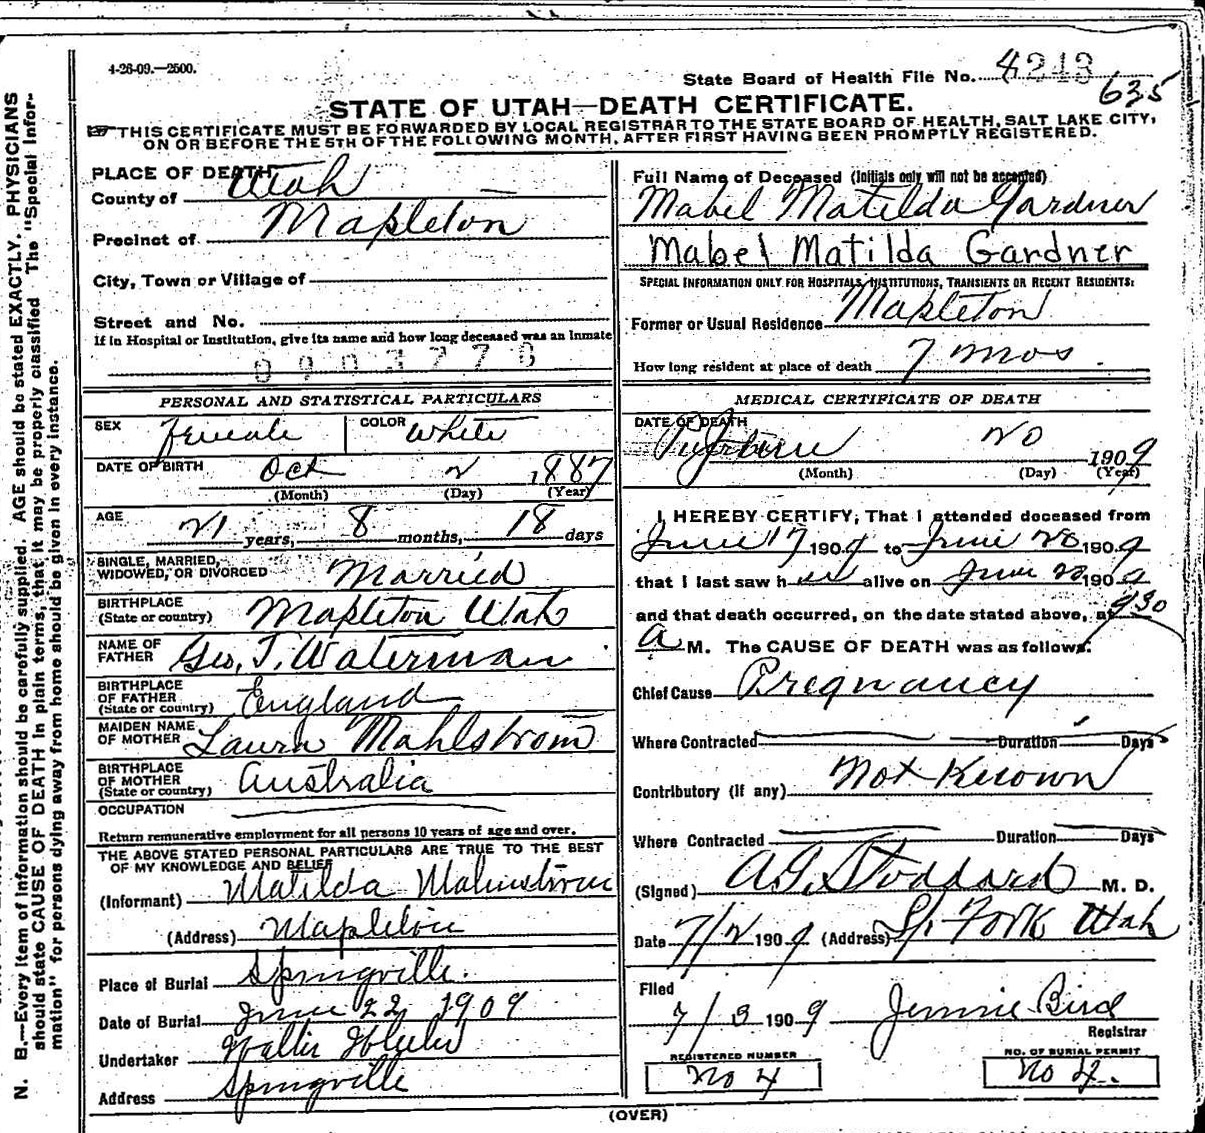 4-26-09.—2500.
State Board of Health File No. 4213
635
STATE OF UTAH—DEATH CERTIFICATE.
THIS CERTIFICATE MUST BE FORWARDED BY LOCAL REGISTRAR TO THE STATE BOARD OF HEALTH, SALT LAKE CITY,
ON OR BEFORE THE 5TH OF THE FOLLOWING MONTH, AFTER FIRST HAVING BEEN PROMPTLY REGISTERED.
N. B.—Every item of information should be carefully supplied. AGE should be stated EXACTLY. PHYSICIANS
should state CAUSE OF DEATH in plain terms, that it may be properly classified. The "Special Infor-
mation" for persons dying away from home should be given in every instance.
PLACE OF DEATH
County of Utah
Precinct of Mapleton
City, Town or Village of
Street and No.
If in Hospital or Institution, give its name and how long deceased was an inmate
0903776
PERSONAL AND STATISTICAL PARTICULARS
SEX female COLOR White
DATE OF BIRTH Oct 2 1887
(Month) (Day) (Year)
AGE 21 years, 8 months, 18 days
SINGLE, MARRIED,
WIDOWED, OR DIVORCED Married
BIRTHPLACE
(State or country) Mapleton Utah
NAME OF
FATHER Geo. T. Waterman
BIRTHPLACE
OF FATHER
(State or country) England
MAIDEN NAME
OF MOTHER Laura Mahlstrom
BIRTHPLACE
OF MOTHER
(State or country) Australia
OCCUPATION
Return remunerative employment for all persons 10 years of age and over.
THE ABOVE STATED PERSONAL PARTICULARS ARE TRUE TO THE BEST
OF MY KNOWLEDGE AND BELIEF
(Informant) Matilda Malmstrom
(Address) Mapleton
Place of Burial Springville.
Date of Burial June 22 1909
Undertaker Walter Wheeler
Address Springville
Full Name of Deceased (Initials only will not be accepted)
Mabel Matilda Gardner
Mabel Matilda Gardner
SPECIAL INFORMATION ONLY FOR HOSPITALS, INSTITUTIONS, TRANSIENTS OR RECENT RESIDENTS:
Former or Usual Residence Mapleton
How long resident at place of death 7 mos.
MEDICAL CERTIFICATE OF DEATH
DATE OF DEATH
20 1909
(Month) (Day) (Year)
I HEREBY CERTIFY, That I attended deceased from
June 17 1909 to June 20 1909
that I last saw her alive on June 20 1909
and that death occurred, on the date stated above, at 930
a M. The CAUSE OF DEATH was as follows:
Chief Cause Pregnancy
Where Contracted Duration Days
Contributory (if any) Not Known
Where Contracted Duration Days
(Signed) A. G. Stoddard M. D.
Date 7/2 1909 (Address) Sp. Fork Utah
Filed
7/3 1909 Jennie Bird
Registrar
REGISTERED NUMBER
No 4
NO. OF BURIAL PERMIT
No 4.
(OVER)